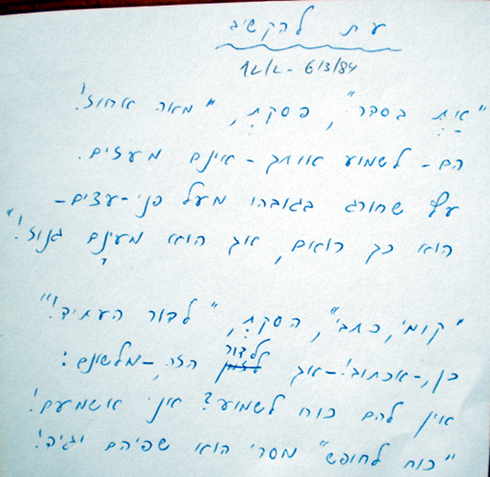 עת להקשיב
12/2 - 6/3/84
"את בסבר", פסקת, "מאה אחוז!
הם - לשמוע אותך - אינם מעזים.
עץ שחורג בגובהו מעל פני-עצים -
הוא כך רואים, אך הוא מעינם גנוז!"
"קומי, כתבי", הסקת, "לדור העתיד!"
כן, - אכתוב! - אך לדור הזר, - מלשונם:
אין להם כוח לשמוע? אני אשמעם!
"כוח לחופש" מסרי הוא שפיהם יגיד!